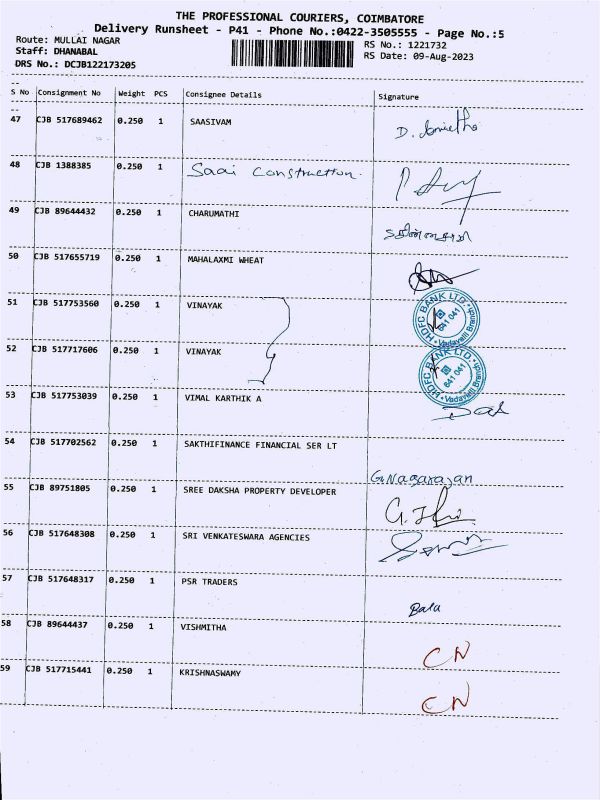 THE PROFESSIONAL COURIERS, COIMBATORE
Delivery Runsheet - P41 - Phone No.:0422-3505555 - Page No.:5
Route: MULLAI NAGAR RS No.: 1221732
Staff: DHANABAL RS Date: 09-Aug-2023
DRS No.: DCJB122173205
S No Consignment No Weight PCS Consignee Details Signature
47 CJB 517689462 0.250 1 SAASIVAM
48 CJB 1388385 0.250 1 Saai Construction
49 CJB 89644432 0.250 1 CHARUMATHI
50 CJB 517655719 0.250 1 MAHALAXMI WHEAT
51 CJB 517753560 0.250 1 VINAYAK HDFC BANK LTD. 641 041 Vadavalli Branch
52 CJB 517717606 0.250 1 VINAYAK HDFC BANK LTD. 641 041 Vadavalli Branch
53 CJB 517753039 0.250 1 VIMAL KARTHIK A
54 CJB 517702562 SAKTHIFINANCE FINANCIAL SER LT
G. Nagarajan
55 CJB 89751805 0.250 1 SREE DAKSHA PROPERTY DEVELOPER
56 CJB 517648308 0.250 1 SRI VENKATESWARA AGENCIES
57 CJB 517648317 0.250 1 PSR TRADERS
Bala
58 CJB 89644437 0.250 1 VISHMITHA
CN
59 CJB 517715441 0.250 1 KRISHNASWAMY
CN